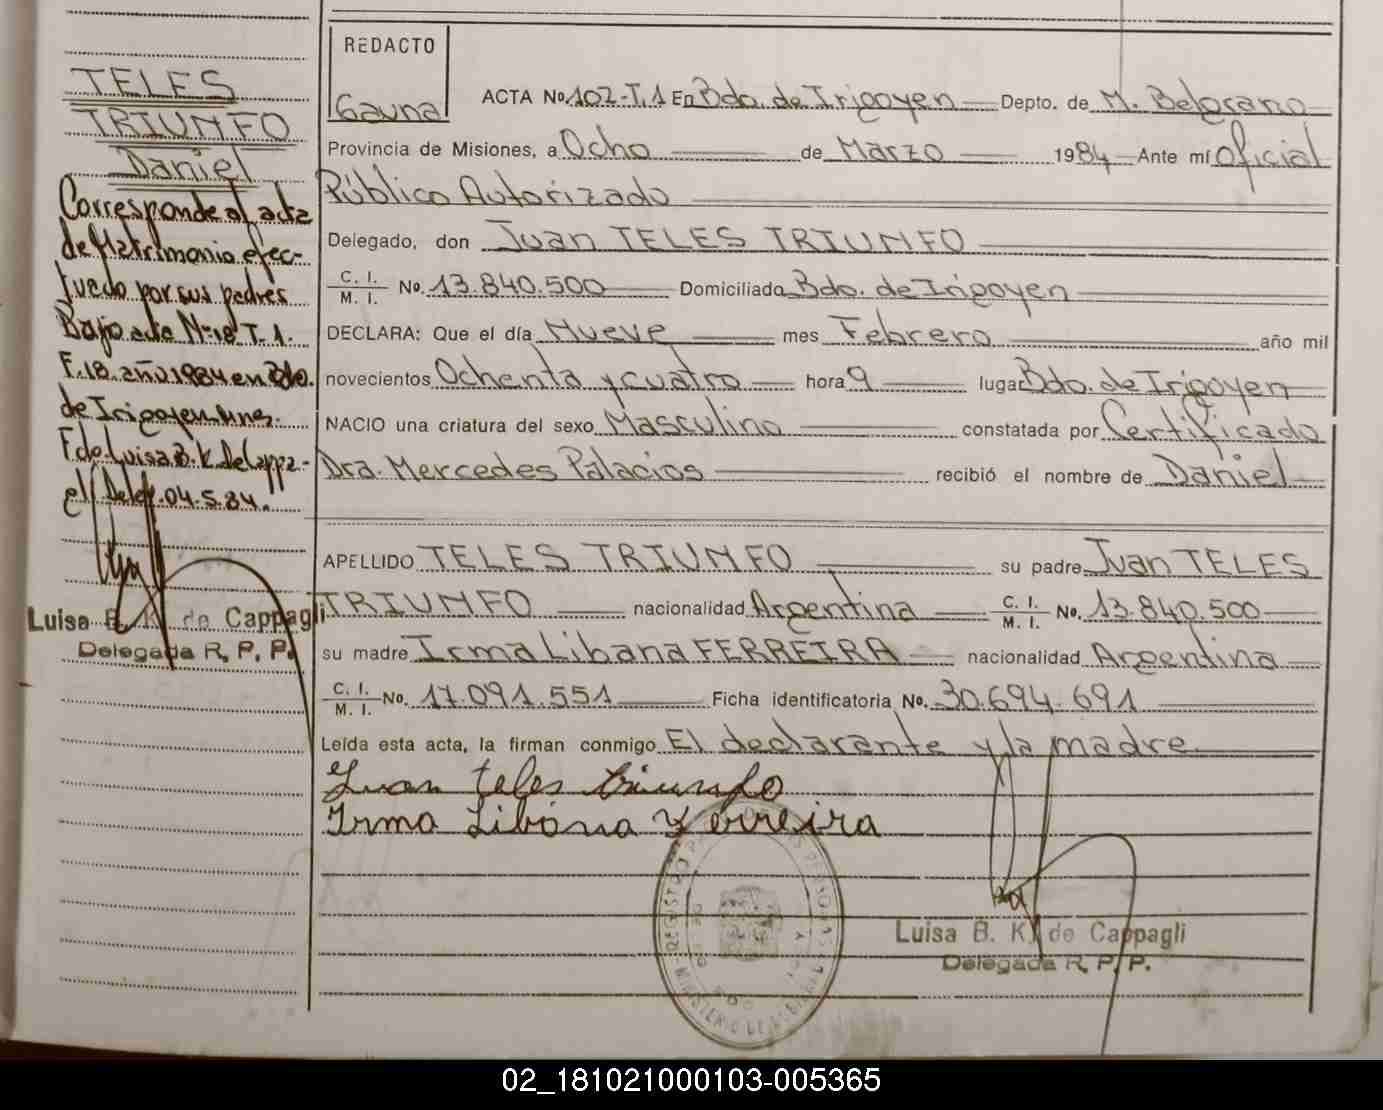 TELES
TRIUNFO
Daniel
Corresponde al acta
de Matrimonio efec-
tuado por sus padres
Bajo acta Nº 18 T. 1.
F. 18. año 1984 en Bdo.
de Irigoyen Mnes.
F. de Luisa B. K. De Cappa-
gli Deleg. 04.5.84.
Luisa B. K. de Cappagli
Delegada R. P. P.
REDACTO
Gauna
ACTA No. 102-T.1 En Bdo. de Irigoyen Depto. de M. Belgrano
Provincia de Misiones, a Ocho de Marzo 1984 Ante mí Oficial
Público Autorizado
Delegado, don Juan TELES TRIUNFO
C. I. / M. I. No. 13.840.500 Domiciliado Bdo. de Irigoyen
DECLARA: Que el día Nueve mes Febrero año mil
novecientos Ochenta y cuatro hora 9 lugar Bdo. de Irigoyen
NACIO una criatura del sexo Masculino constatada por Certificado
Dra. Mercedes Palacios recibió el nombre de Daniel
APELLIDO TELES TRIUNFO su padre Juan TELES
TRIUNFO nacionalidad Argentina C. I. / M. I. No. 13.840.500
su madre Irma Libana FERREIRA nacionalidad Argentina
C. I. / M. I. No. 17.091.551 Ficha identificatoria No. 30.694.691
Leída esta acta, la firman conmigo El declarante y la madre
Juan teles triunfo
Irma Libana Ferreira
Luisa B. K. de Cappagli
Delegada R. P. P.
02_181021000103-005365